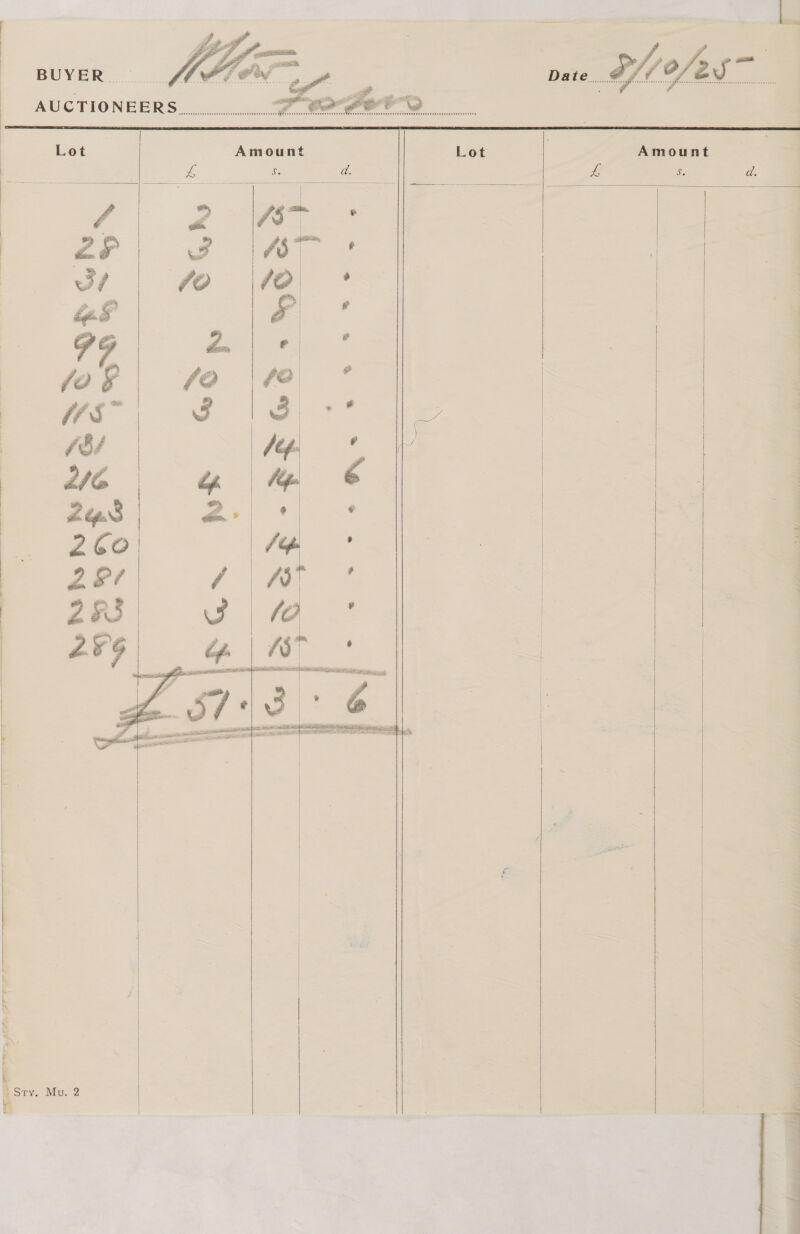 BUYER Date 8/10/25
AUCTIONEERS
Lot Amount Lot Amount
£ s. d. £ s. d.
1 2 15 •
28 3 15 •
31 10 10 •
48 8 •
99 2 • •
108 10 10 •
115 3 3 •
131 14 •
216 4 14 6
243 2 • •
260 14 •
281 1 15 •
283 3 10 •
289 4 15 •
£ 51 • 3 • 6
Sty. Mu. 2